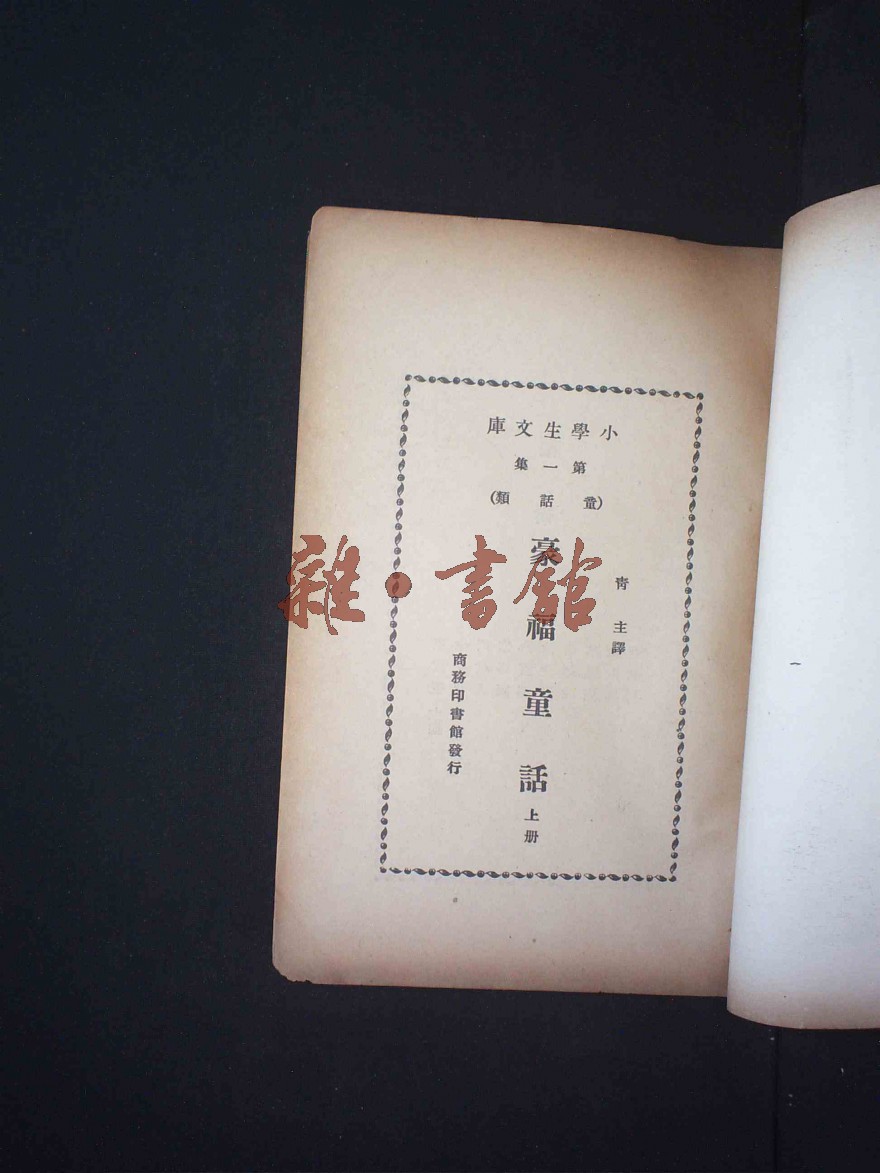 小學生文庫
第一集
(童話類)
青主譯
豪福童話上册
商務印書館發行
雜·書館
一